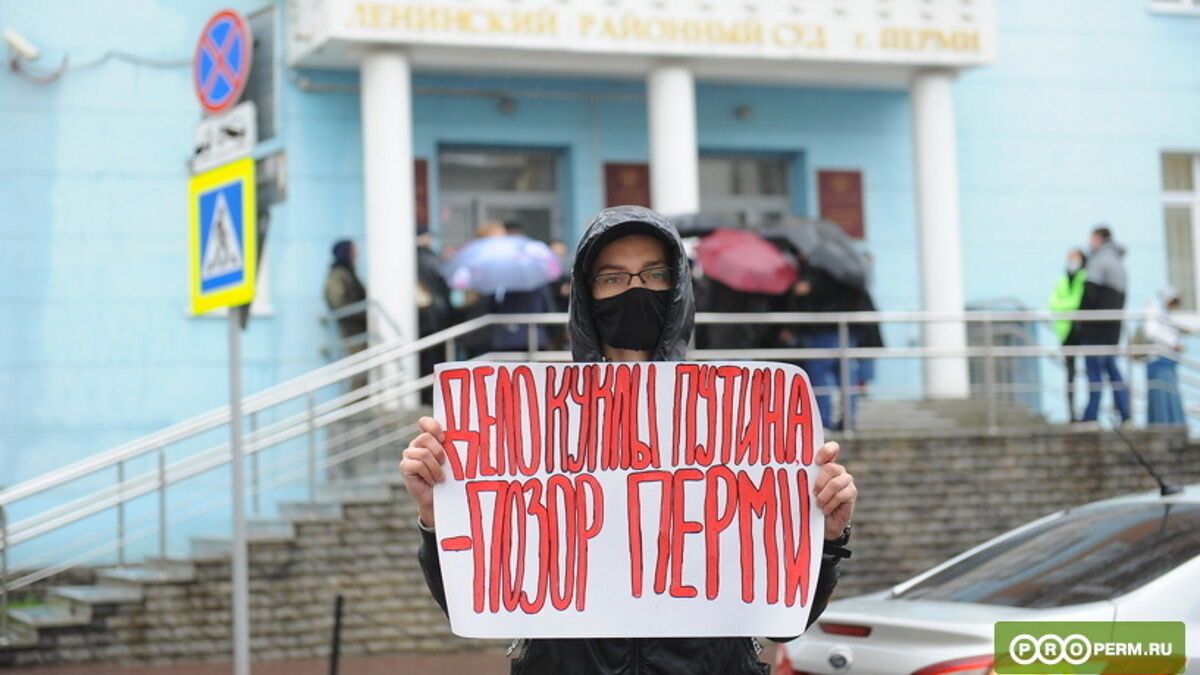 ЛЕНИНСКИЙ РАЙОННЫЙ СУД г. ПЕРМИ
ДЕЛО КУКЛЫ ПУТИНА
-ПОЗОР ПЕРМИ
PROPERM.RU